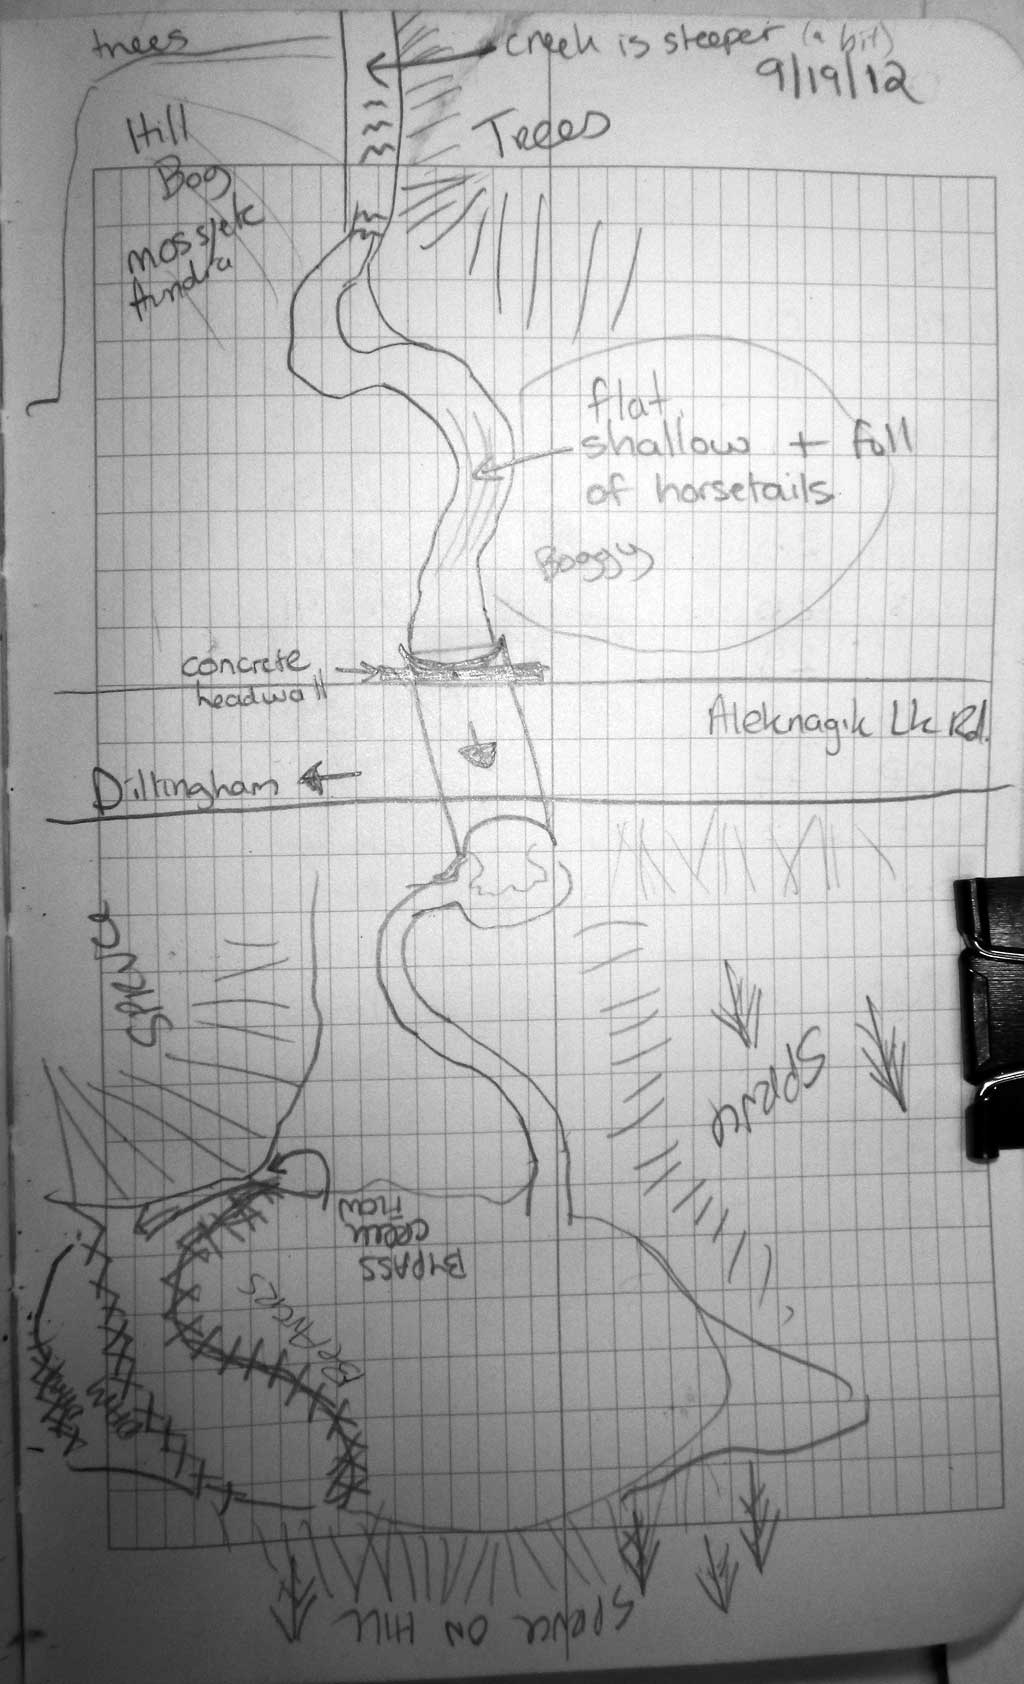 trees
creek is steeper (a bit)
9/19/12
Hill
Trees
Bog
moss/etc
tundra
flat,
shallow + full
of horsetails
Boggy
concrete
headwall
Aleknagik Lk Rd.
Dillingham
SPRUCE
SPRUCE
BYPASS
CREEK
FLOW
BEAVERS
SPRUCE ON HILL